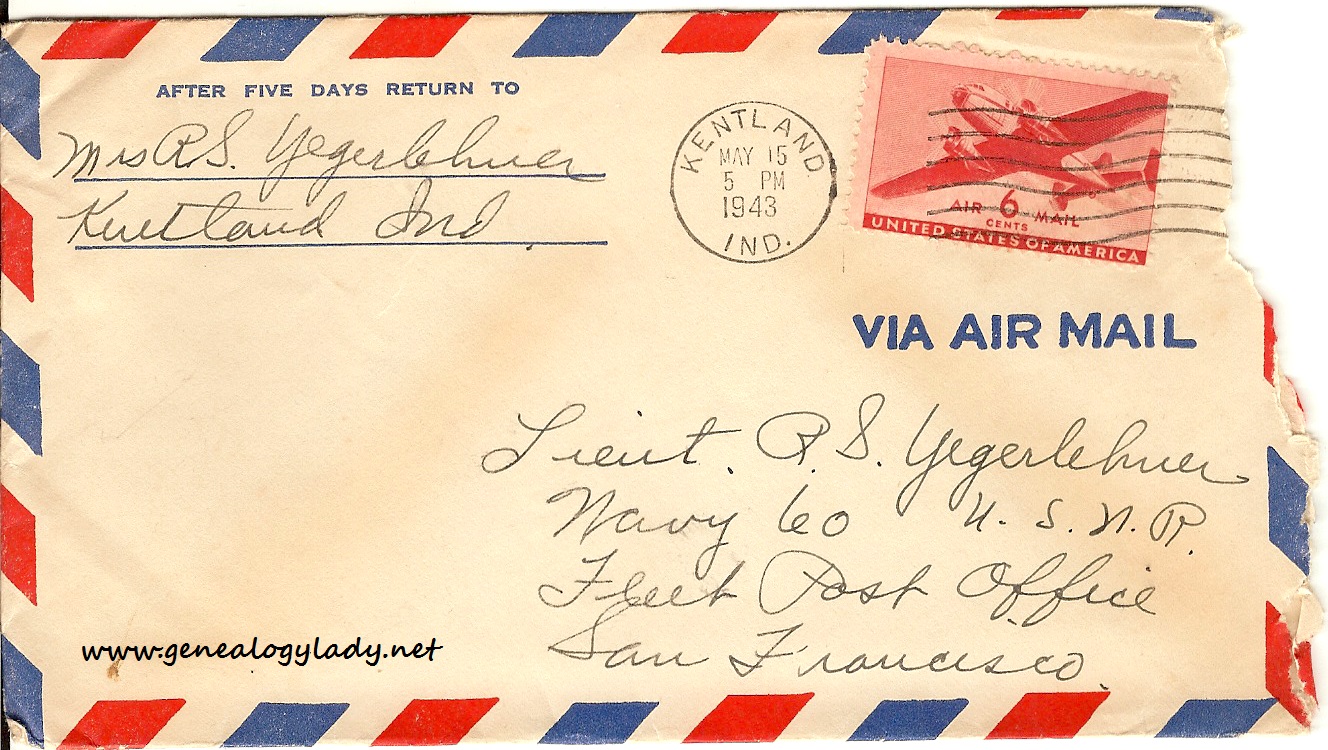 AFTER FIVE DAYS RETURN TO
Mrs R.S. Yegerlehner
Kentland Ind.
KENTLAND
MAY 15
5 PM
1943
IND.
AIR 6 MAIL
CENTS
UNITED STATES OF AMERICA
VIA AIR MAIL
Lieut. R.S. Yegerlehner
Navy 60 U.S.N.R.
Fleet Post Office
San Francisco.
www.genealogylady.net